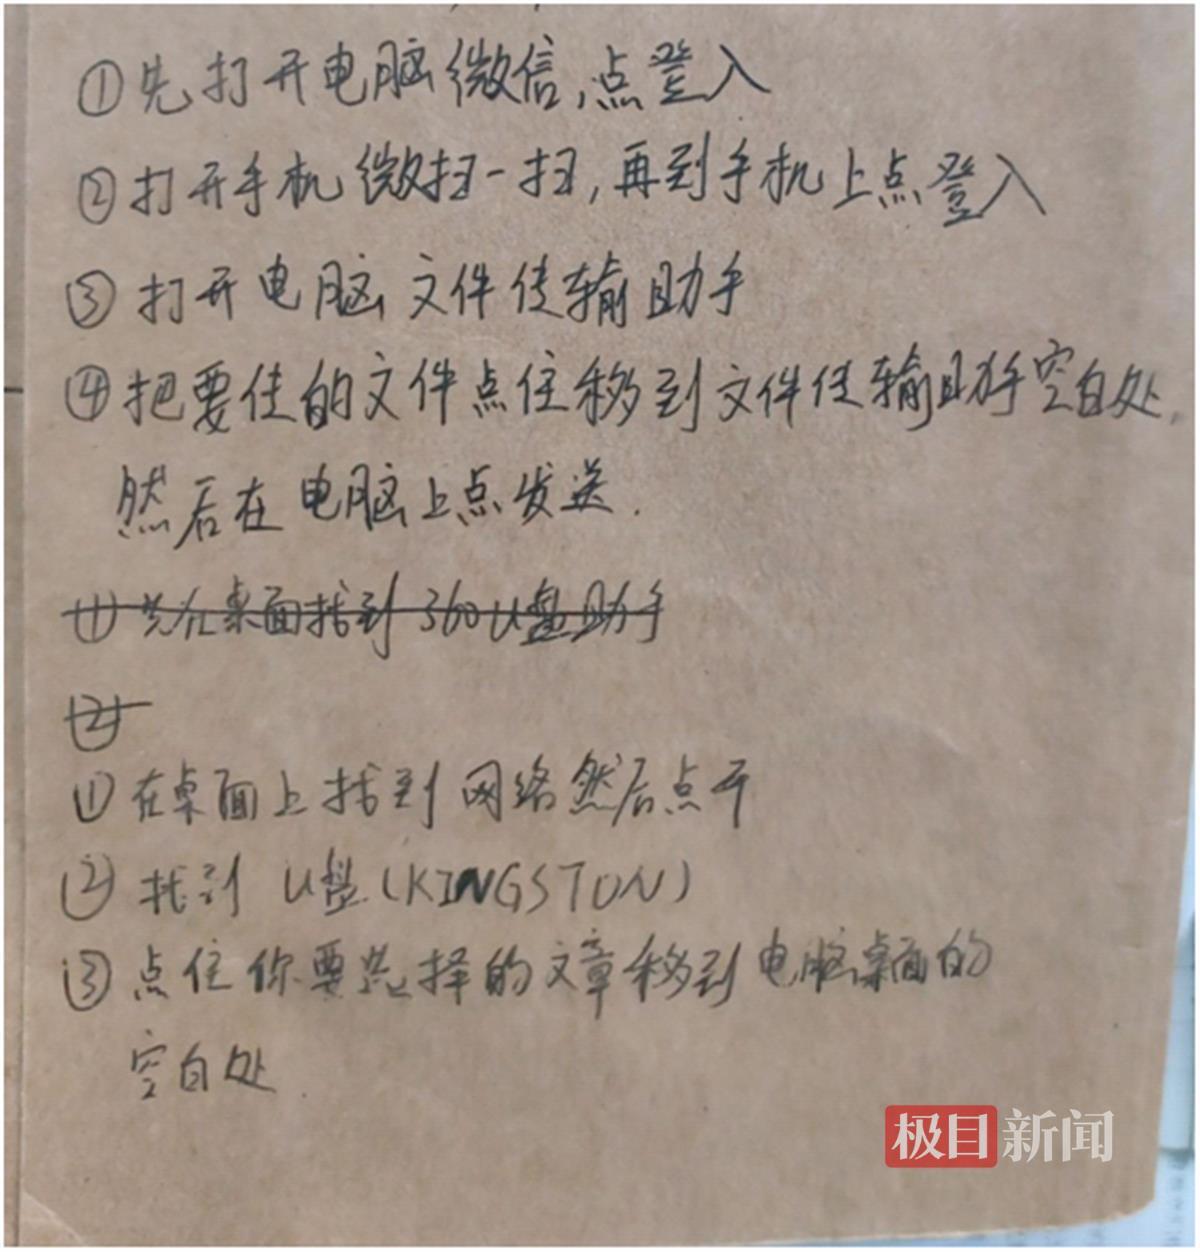 ①先打开电脑微信,点登入
②打开手机微扫一扫,再到手机上点登入
③打开电脑文件传输助手
④把要传的文件点住移到文件传输助手空白处,
然后在电脑上点发送.
①先在桌面找到360U盘助手
②
①在桌面上找到网络然后点开
②找到U盘(KINGSTON)
③点住你要选择的文章移到电脑桌面的
空白处
极目新闻